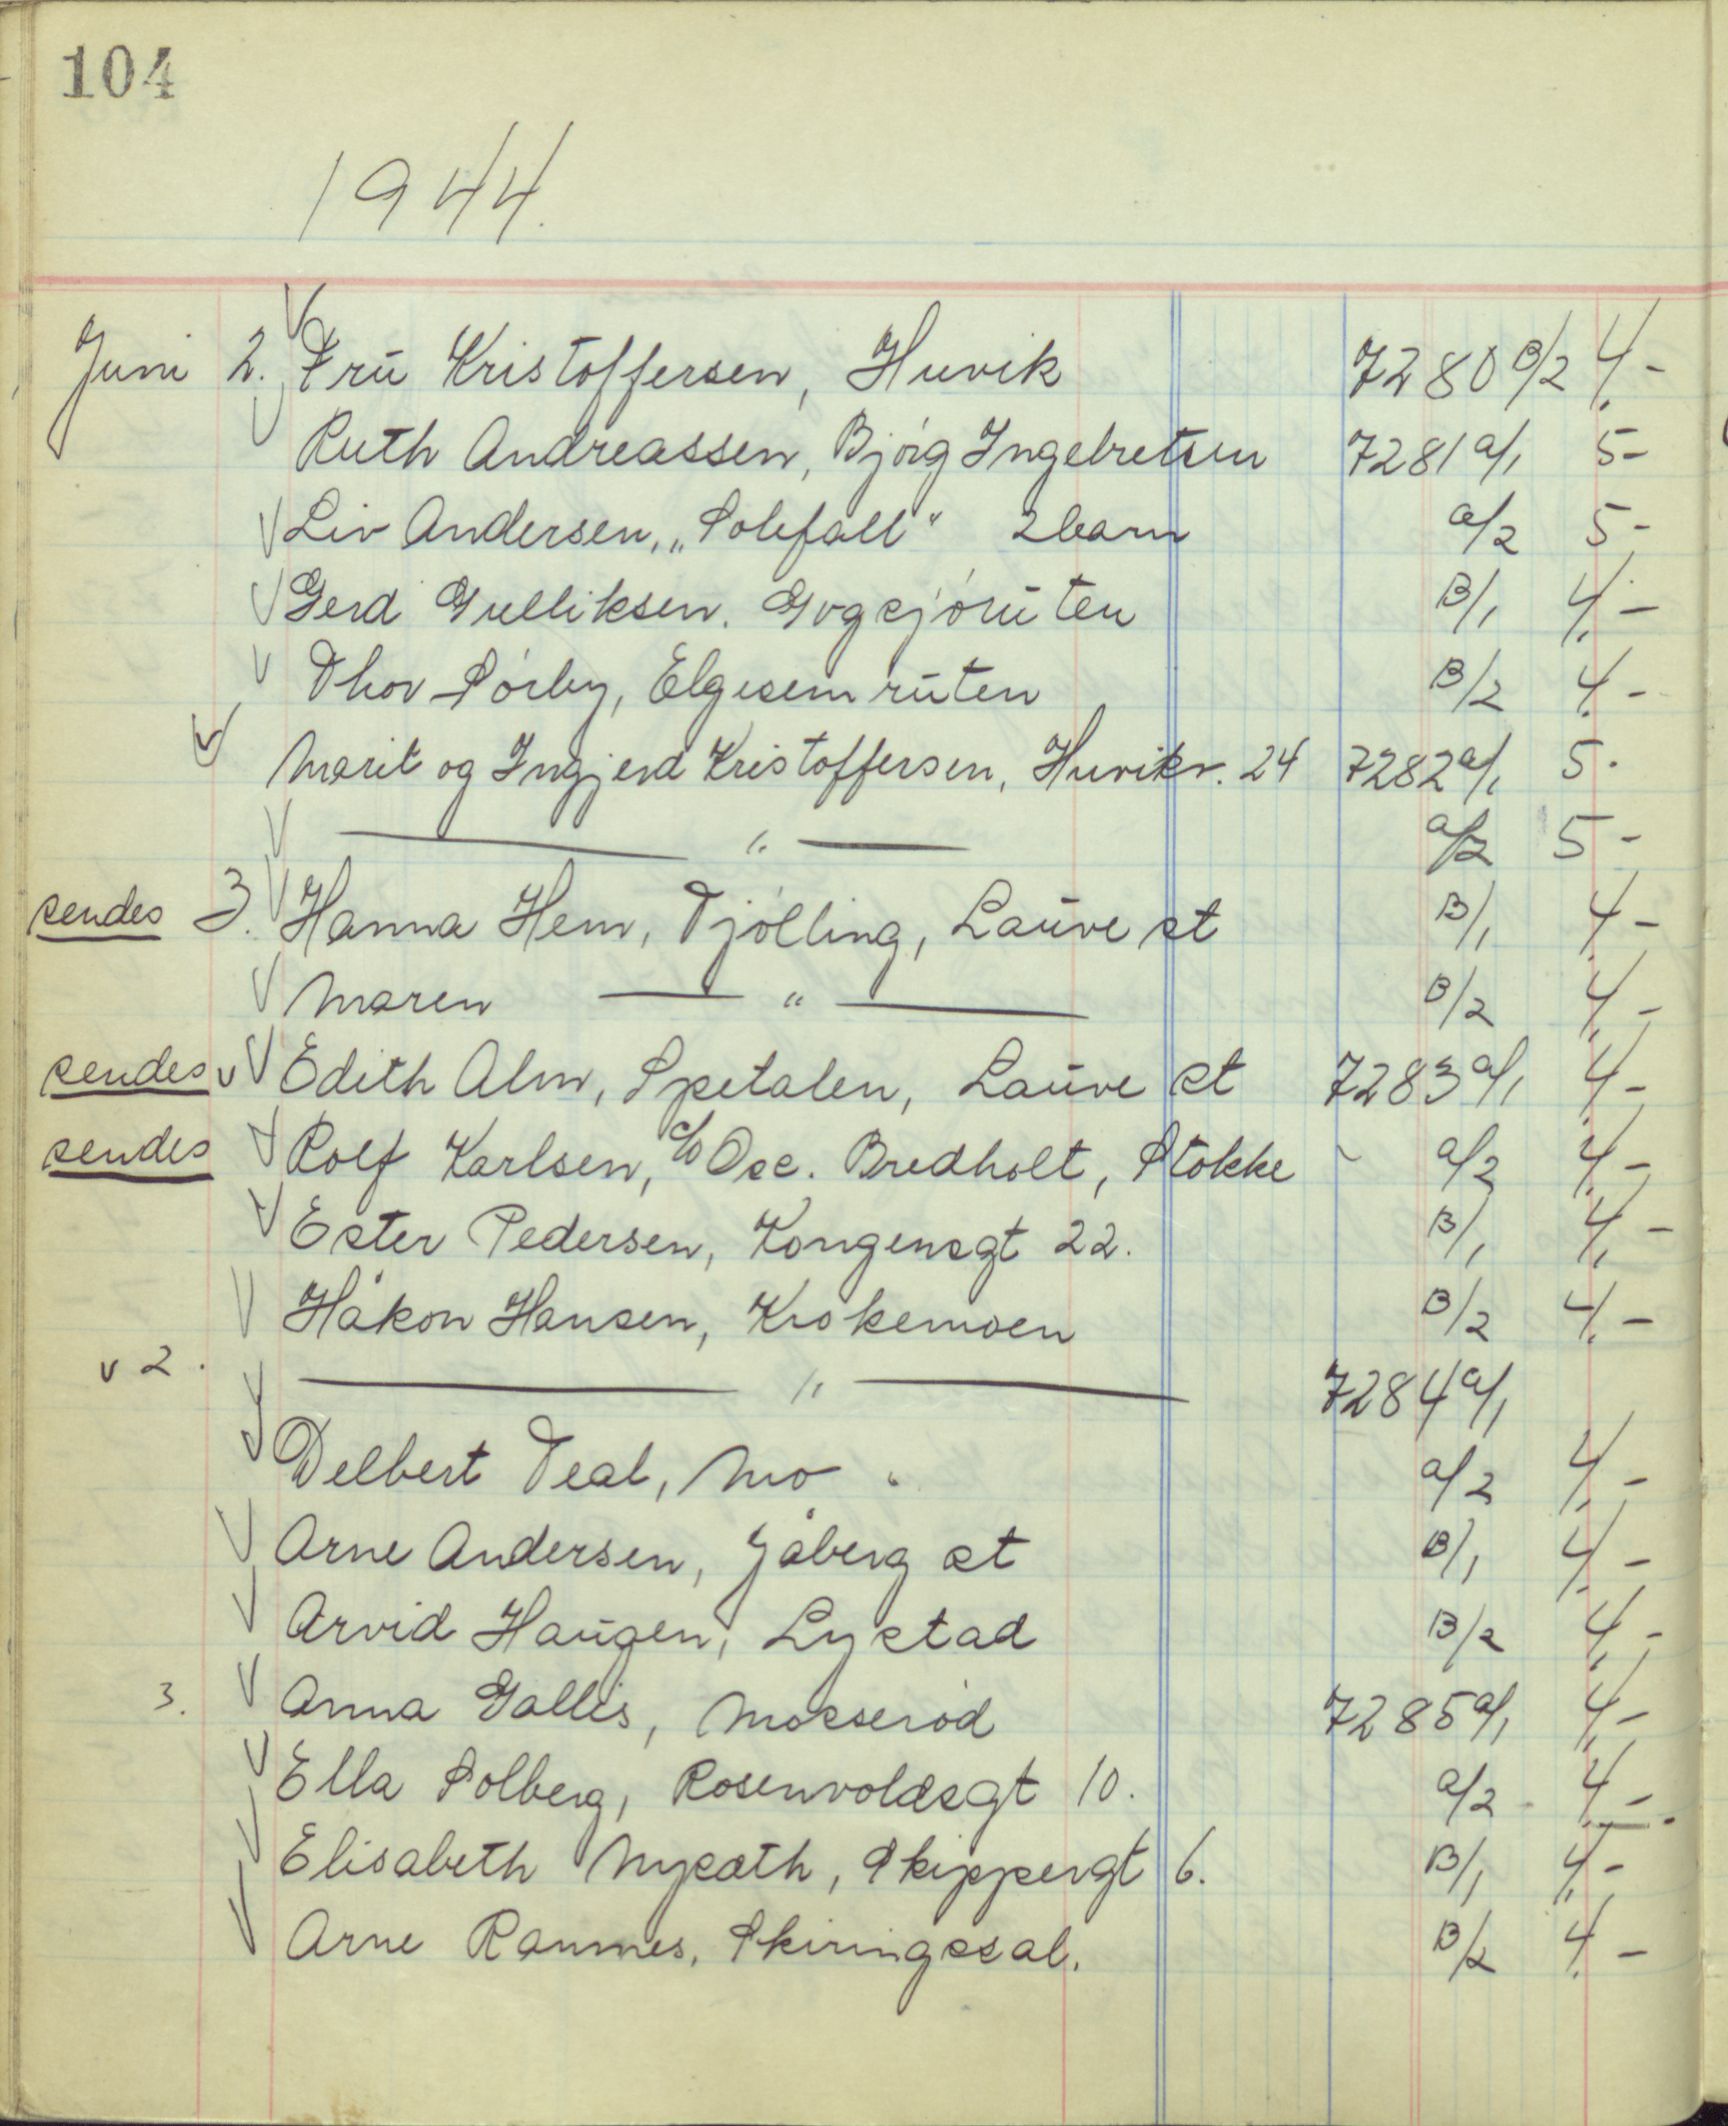 104
1944.
Juni 2. Fru Kristoffersen, Huvik 7280 B/2 4,-
Ruth Andreassen, Bjørg Ingebretsen 7281 a/1 5-
Liv Andersen, „Solefall" 2 barn a/2 5-
Gerd Gulliksen. Gogsjøruten B/1 4,-
Thor Sørby, Elgesemruten B/2 4,-
Marit og Ingjerd Kristoffersen, Huvikv. 24 7282 a/1 5-
— " — a/2 5-
sendes 3. Hanna Hem, Tjølling, Lauve st B/1 4,-
Maren — " — B/2 4,-
sendes v Edith Alm, Spetalen, Lauve st 7283 a/1 4,-
sendes Rolf Karlsen, c/o Osc. Bredholt, Stokke a/2 4,-
Ester Pedersen, Kongensgt 22. B/1 4,-
Håkon Hansen, Krokemoen B/2 4,-
v 2. — " — 7284 a/1
Delbert Teal, Mo a/2 4,-
Arne Andersen, Jåberg st B/1 4,-
Arvid Haugen, Lystad B/2 4,-
3. Anna Gallis, Mosserød 7285 a/1 4,-
Ella Solberg, Rosenvoldsgt 10. a/2 4,-
Elisabeth Nysæth, Skippergt 6. B/1 4,-
Arne Ramnes, Skiringssal. B/2 4,-